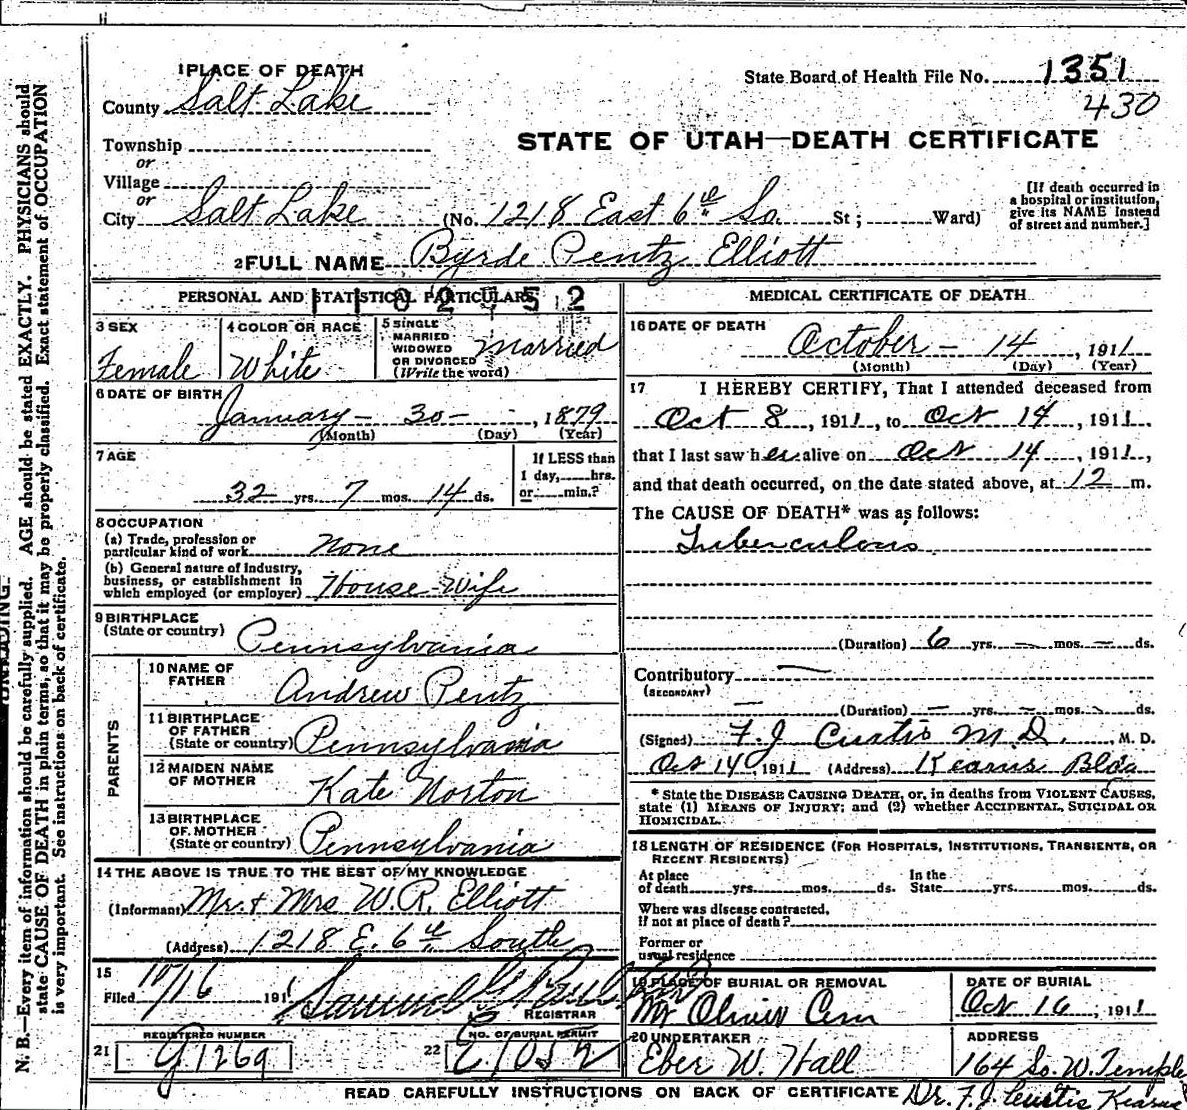 1 PLACE OF DEATH
County Salt Lake
Township
or
Village
or
City Salt Lake (No. 1218 East 6th So. St ; Ward)
State Board of Health File No. 1351
430
STATE OF UTAH—DEATH CERTIFICATE
[If death occurred in
a hospital or institution,
give its NAME instead
of street and number.]
2 FULL NAME Byrde Pentz Elliott
PERSONAL AND STATISTICAL PARTICULARS
3 SEX
Female
4 COLOR OR RACE
White
5 SINGLE
MARRIED
WIDOWED
OR DIVORCED
(Write the word)
Married
6 DATE OF BIRTH
January - 30 - , 1879
(Month) (Day) (Year)
7 AGE
32 yrs. 7 mos. 14 ds.
If LESS than
1 day, hrs.
or min.?
8 OCCUPATION
(a) Trade, profession or
particular kind of work None
(b) General nature of industry,
business, or establishment in
which employed (or employer) House Wife
9 BIRTHPLACE
(State or country) Pennsylvania
PARENTS
10 NAME OF
FATHER Andrew Pentz
11 BIRTHPLACE
OF FATHER
(State or country) Pennsylvania
12 MAIDEN NAME
OF MOTHER Kate Norton
13 BIRTHPLACE
OF MOTHER
(State or country) Pennsylvania
14 THE ABOVE IS TRUE TO THE BEST OF MY KNOWLEDGE
(Informant) Mr. & Mrs W. R. Elliott
(Address) 1218 E. 6th South
15
Filed 10/16 191
REGISTRAR
REGISTERED NUMBER
21 G1269
NO. OF BURIAL PERMIT
22
MEDICAL CERTIFICATE OF DEATH
16 DATE OF DEATH
October - 14 , 1911
(Month) (Day) (Year)
17 I HEREBY CERTIFY, That I attended deceased from
Oct 8, 1911, to Oct 14, 1911,
that I last saw her alive on Oct 14, 1911,
and that death occurred, on the date stated above, at 12 m.
The CAUSE OF DEATH* was as follows:
Tuberculosis
(Duration) 6 yrs. — mos. — ds.
Contributory —
(SECONDARY)
— (Duration) — yrs. — mos. ds.
(Signed) F. J Curtis M. D. , M. D.
Oct 14, 1911 (Address) Kearns Bldg
* State the DISEASE CAUSING DEATH, or, in deaths from VIOLENT CAUSES,
state (1) MEANS OF INJURY; and (2) whether ACCIDENTAL, SUICIDAL OR
HOMICIDAL.
18 LENGTH OF RESIDENCE (FOR HOSPITALS, INSTITUTIONS, TRANSIENTS, OR
RECENT RESIDENTS)
At place
of death yrs. mos. ds.
In the
State yrs. mos. ds.
Where was disease contracted,
If not at place of death?
Former or
usual residence
19 PLACE OF BURIAL OR REMOVAL
Mt Olivet Cem
DATE OF BURIAL
Oct 16, 1911
20 UNDERTAKER
Eber W. Hall
ADDRESS
164 So. W. Temple
READ CAREFULLY INSTRUCTIONS ON BACK OF CERTIFICATE Dr. F. J. Curtis Kearns
N. B.—Every item of information should be carefully supplied. AGE should be stated EXACTLY. PHYSICIANS should
state CAUSE OF DEATH in plain terms, so that it may be properly classified. Exact statement of OCCUPATION
is very important. See instructions on back of certificate.